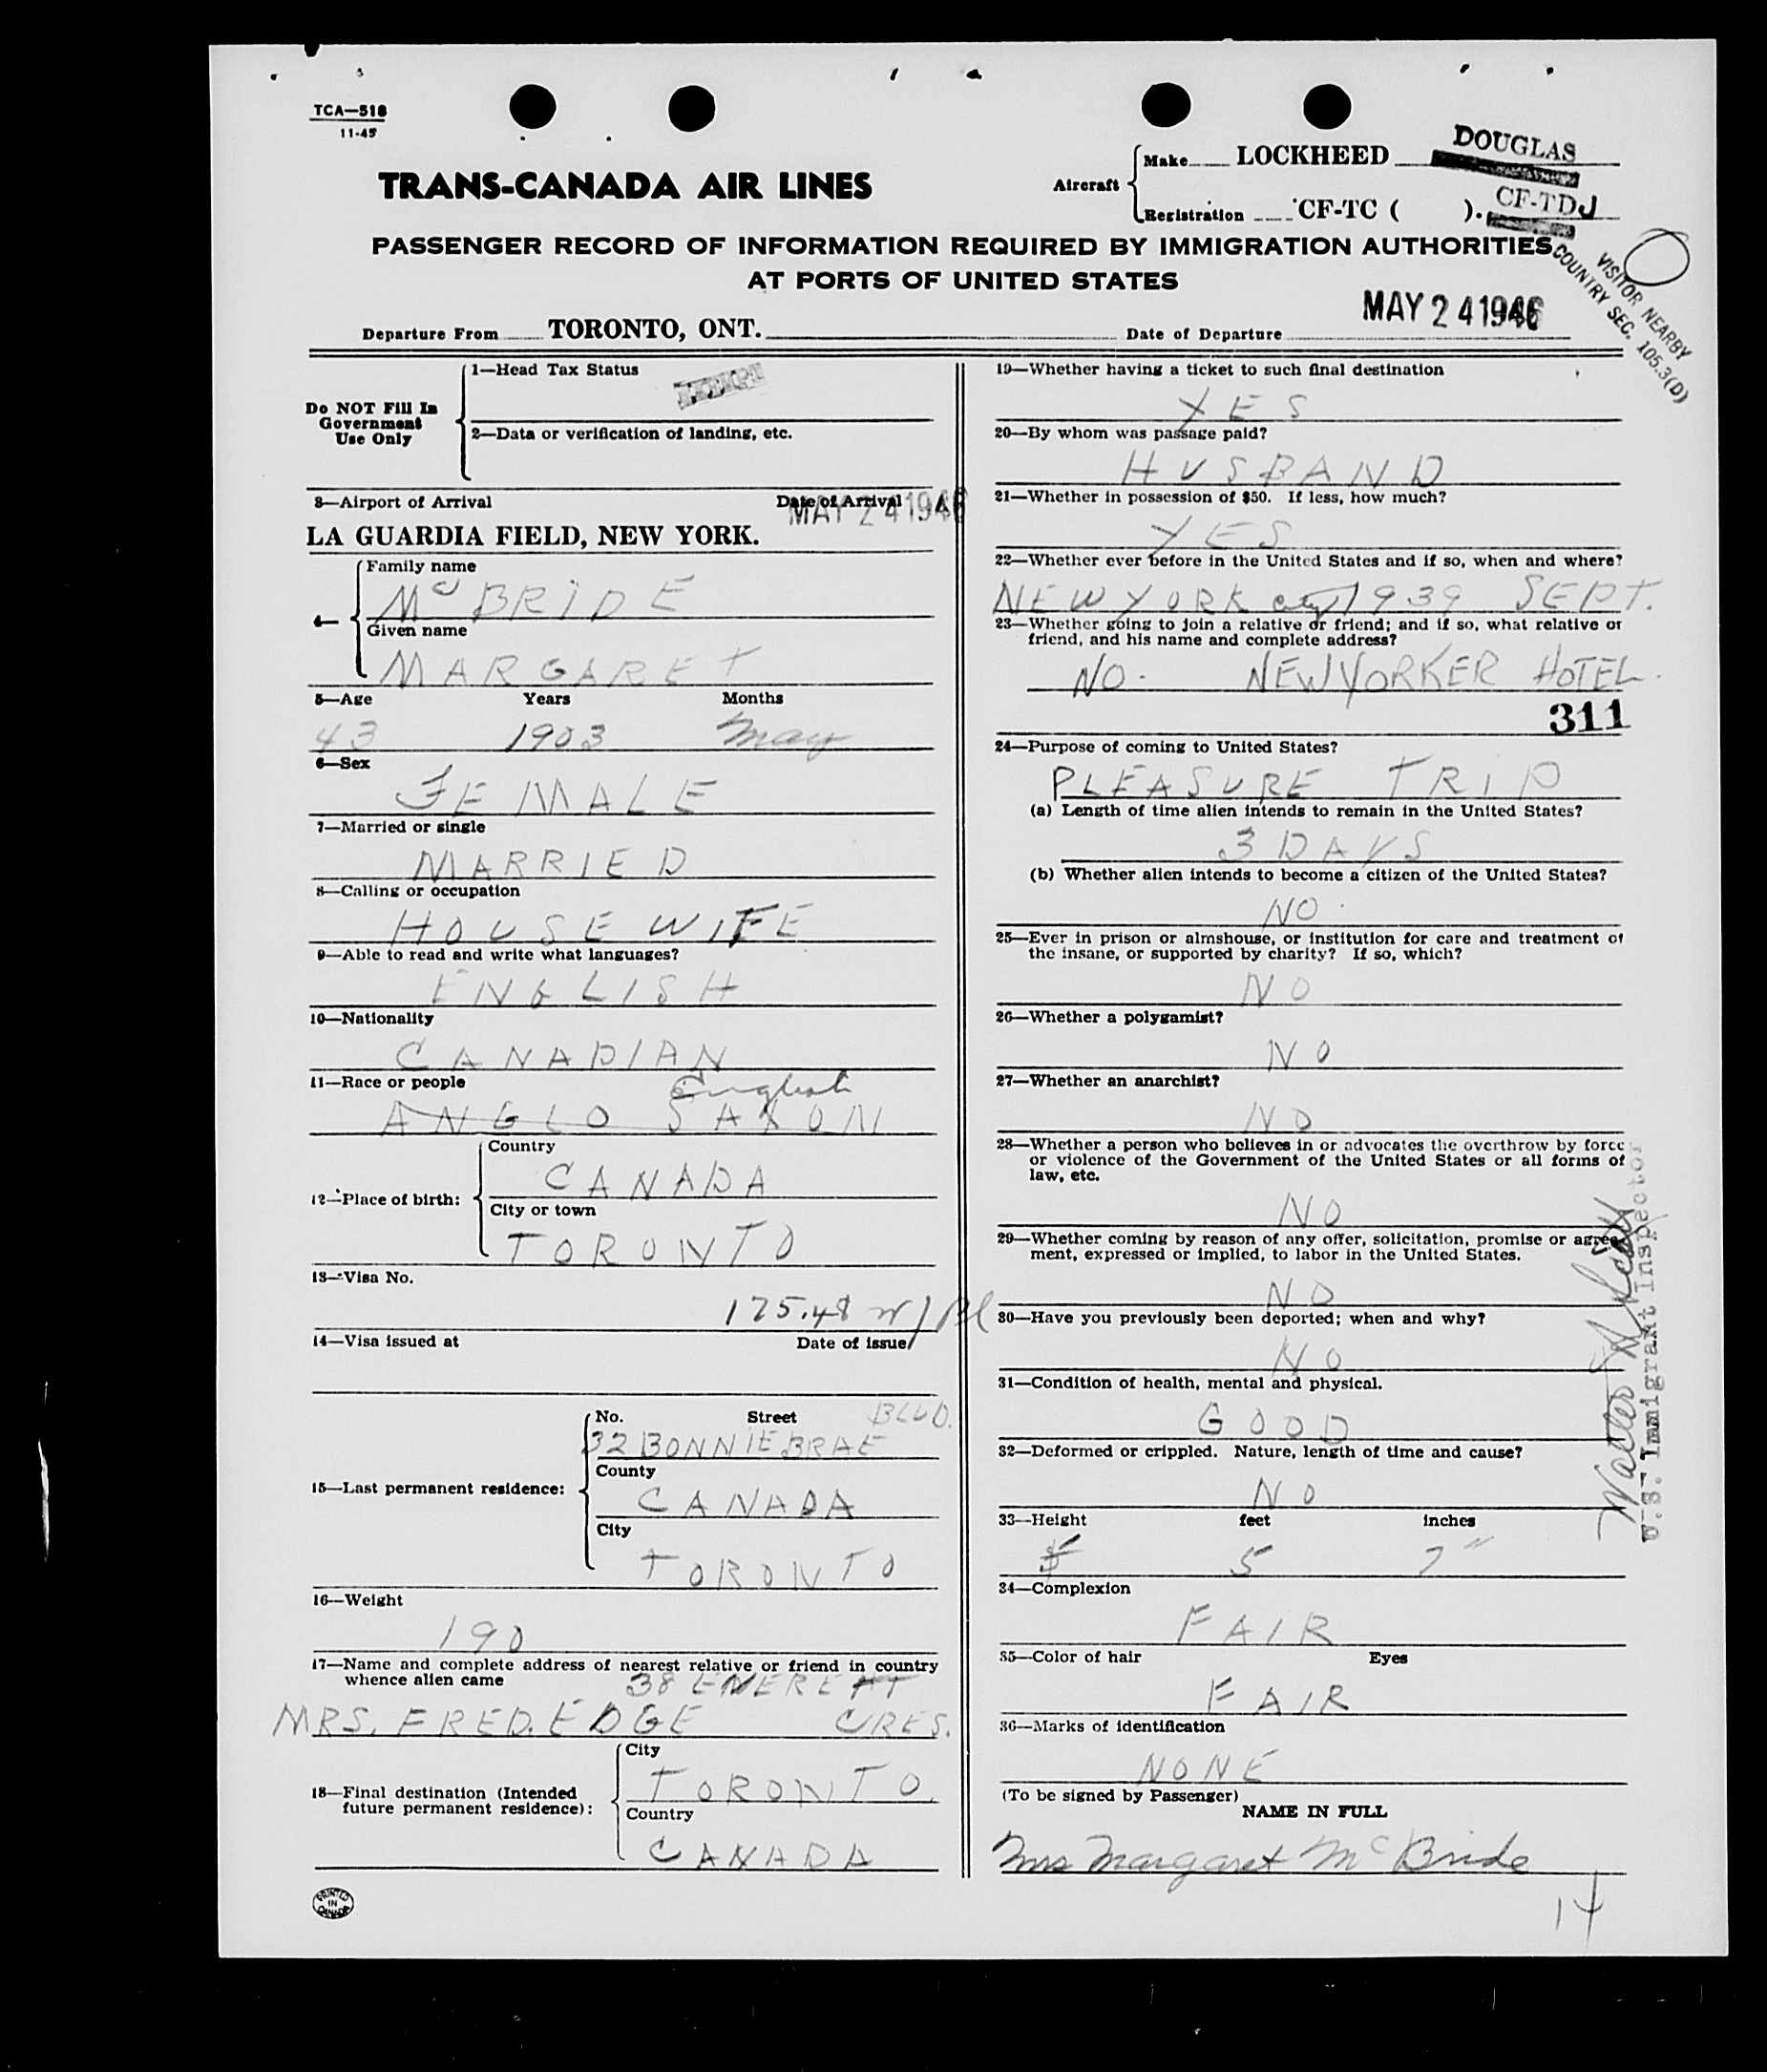 TCA—518
11-45
TRANS-CANADA AIR LINES
Aircraft
Make LOCKHEED DOUGLAS
Registration CF-TC ( ). CF-TDJ
PASSENGER RECORD OF INFORMATION REQUIRED BY IMMIGRATION AUTHORITIES
AT PORTS OF UNITED STATES
VISITOR NEARBY
COUNTRY SEC. 105.3(D)
Departure From TORONTO, ONT. Date of Departure MAY 24 1946
Do NOT Fill In
Government
Use Only
1—Head Tax Status EXEMPT
2—Data or verification of landing, etc.
3—Airport of Arrival Date of Arrival MAY 24 1946
LA GUARDIA FIELD, NEW YORK.
4—
Family name
McBRIDE
Given name
MARGARET
5—Age Years Months
43 1903 May
6—Sex
FEMALE
7—Married or single
MARRIED
8—Calling or occupation
HOUSE WIFE
9—Able to read and write what languages?
ENGLISH
10—Nationality
CANADIAN
11—Race or people
English
ANGLO SAXON
12—Place of birth:
Country
CANADA
City or town
TORONTO
13—Visa No.
175.48
14—Visa issued at Date of issue
15—Last permanent residence:
No. Street BLVD.
32 BONNIEBRAE
County
CANADA
City
TORONTO
16—Weight
190
17—Name and complete address of nearest relative or friend in country
whence alien came 38
MRS. FRED. EDGE CRES.
18—Final destination (Intended
future permanent residence):
City
TORONTO.
Country
CANADA
PRINTED
IN
CANADA
19—Whether having a ticket to such final destination
YES
20—By whom was passage paid?
HUSBAND
21—Whether in possession of $50. If less, how much?
YES
22—Whether ever before in the United States and if so, when and where?
NEW YORK city 1939 SEPT.
23—Whether going to join a relative or friend; and if so, what relative or
friend, and his name and complete address?
NO. NEW YORKER HOTEL.
311
24—Purpose of coming to United States?
PLEASURE TRIP
(a) Length of time alien intends to remain in the United States?
3 DAYS
(b) Whether alien intends to become a citizen of the United States?
NO.
25—Ever in prison or almshouse, or institution for care and treatment of
the insane, or supported by charity? If so, which?
NO
26—Whether a polygamist?
NO
27—Whether an anarchist?
NO
28—Whether a person who believes in or advocates the overthrow by force
or violence of the Government of the United States or all forms of
law, etc.
NO
29—Whether coming by reason of any offer, solicitation, promise or agree-
ment, expressed or implied, to labor in the United States.
NO
30—Have you previously been deported; when and why?
NO
31—Condition of health, mental and physical.
GOOD
32—Deformed or crippled. Nature, length of time and cause?
NO
33—Height feet inches
5 5 7"
34—Complexion
FAIR
35—Color of hair Eyes
FAIR
36—Marks of identification
NONE
(To be signed by Passenger)
NAME IN FULL
Mrs Margaret McBride
14
Walter
U.S. Immigrant Inspector